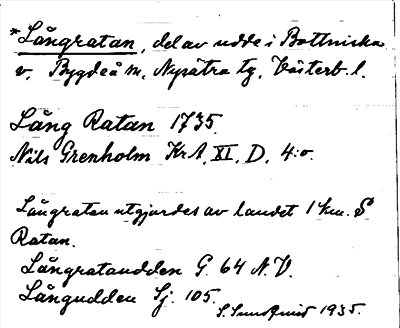 *Långratan, del av udde i Bottniska
v. Bygdeå sn, Nysätra tg, Västerb. l.
Lång Ratan 1735.
Nils Grenholm KrA, XI, D, 4:o.
Långratan utgjordes av landet 1 km. S
Ratan.
Långrataudden G. 64 N.V.
Långudden Sj. 105.
S. Sundqvist 1935.